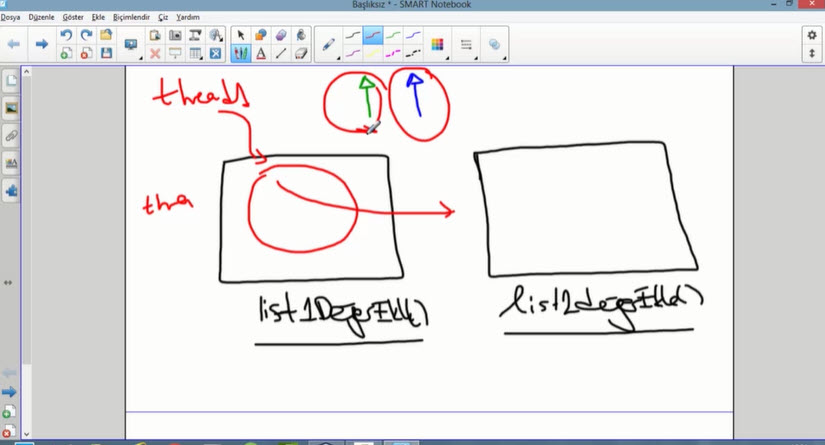 Başlıksız * - SMART Notebook
Dosya Düzenle Göster Ekle Biçimlendir Çiz Yardım
threads
thre
list1DegerEkle()
list2degerEkle()